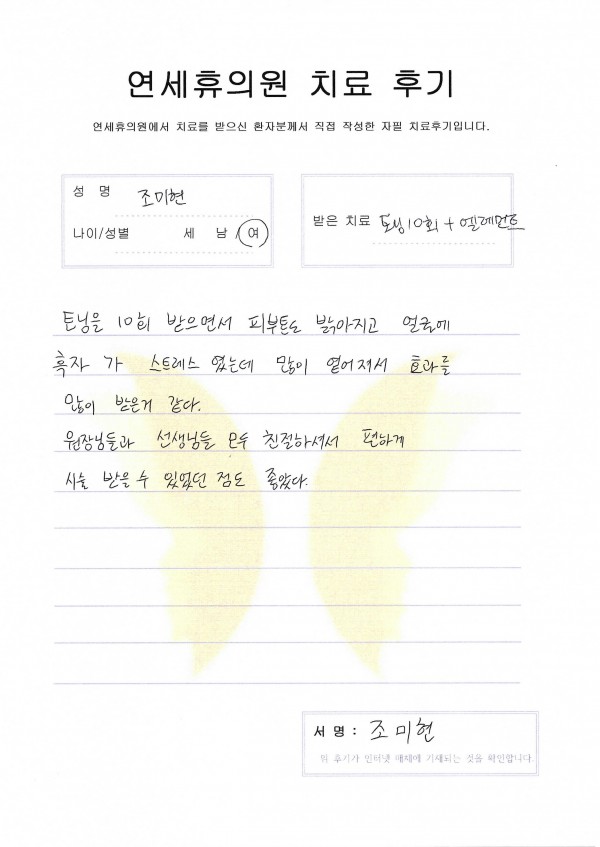 연세휴의원 치료 후기
연세휴의원에서 치료를 받으신 환자분께서 직접 작성한 자필 치료후기입니다.
성 명 조미현
나이/성별 세 남/여
받은 치료 토닝10회 + 엘레먼트
토닝을 10회 받으면서 피부톤도 밝아지고 얼굴에
흑자가 스트레스 였는데 많이 옅어져서 효과를
많이 받은거 같다.
원장님들과 선생님들 모두 친절하셔서 편하게
시술 받을 수 있었던 점도 좋았다.
서명 : 조미현
위 후기가 인터넷 매체에 기재되는 것을 확인합니다.